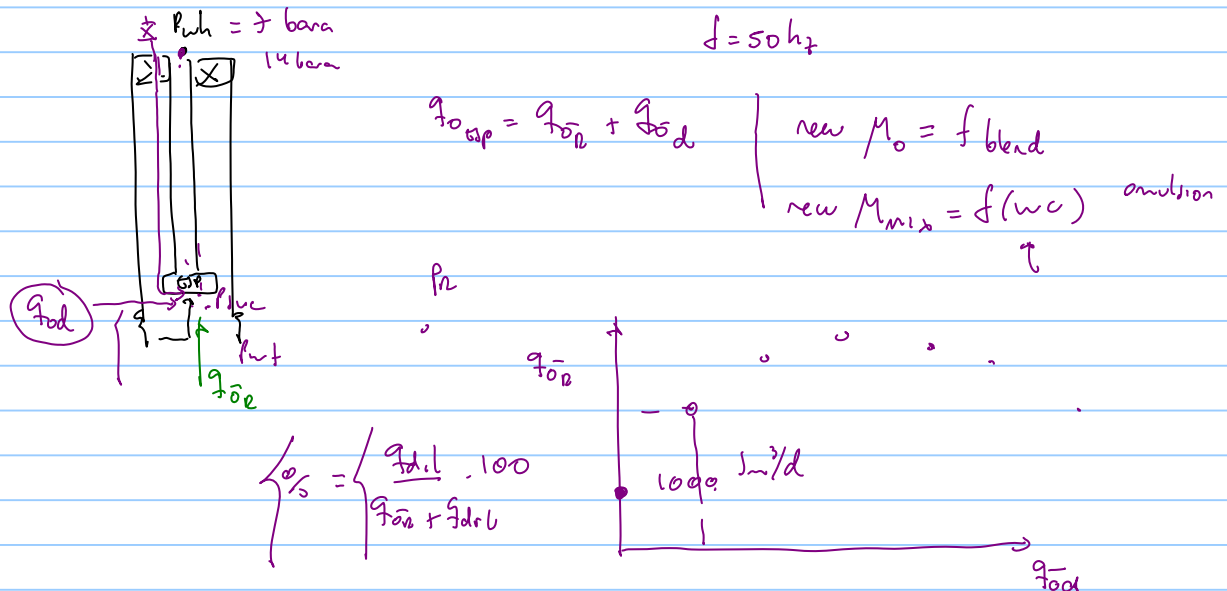 Pwh = 7 bara
14 bara
f = 50 hz
q_o esp = q_ōR + q_ōd
new μ_o = f blend
new μ_mix = f(wc) emulsion
ESP
Psuc
q_od
Pwf
q_ōR
PR
q_ōR
% = q_dil / (q_ōR + q_dil) · 100
1000 Sm³/d
q_ōd